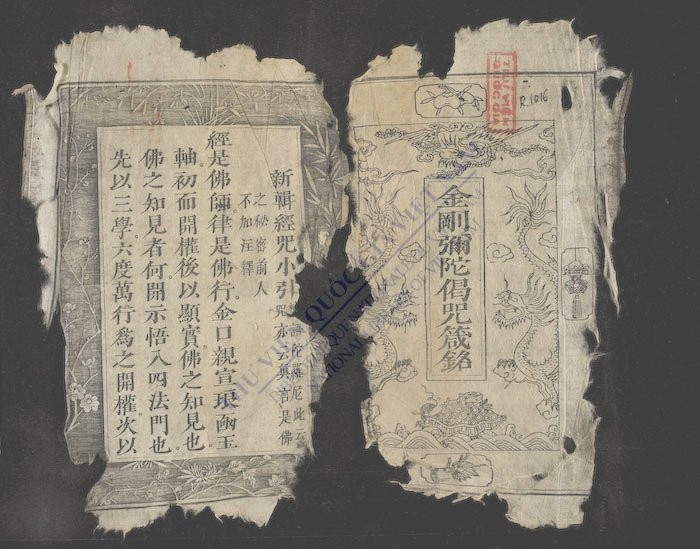 金剛彌陀偈咒箴銘
R.1016
新輯經咒小引
陀羅尼此云
咒亦云真言是佛
之秘密前人
不加注釋
經是佛師律是佛行金口親宣琅函玉
軸初而開權後以顯實佛之知見也
佛之知見者何開示悟入四法門也
先以三學六度萬行爲之開權次以
THƯ VIỆN QUỐC GIA VIỆT NAM